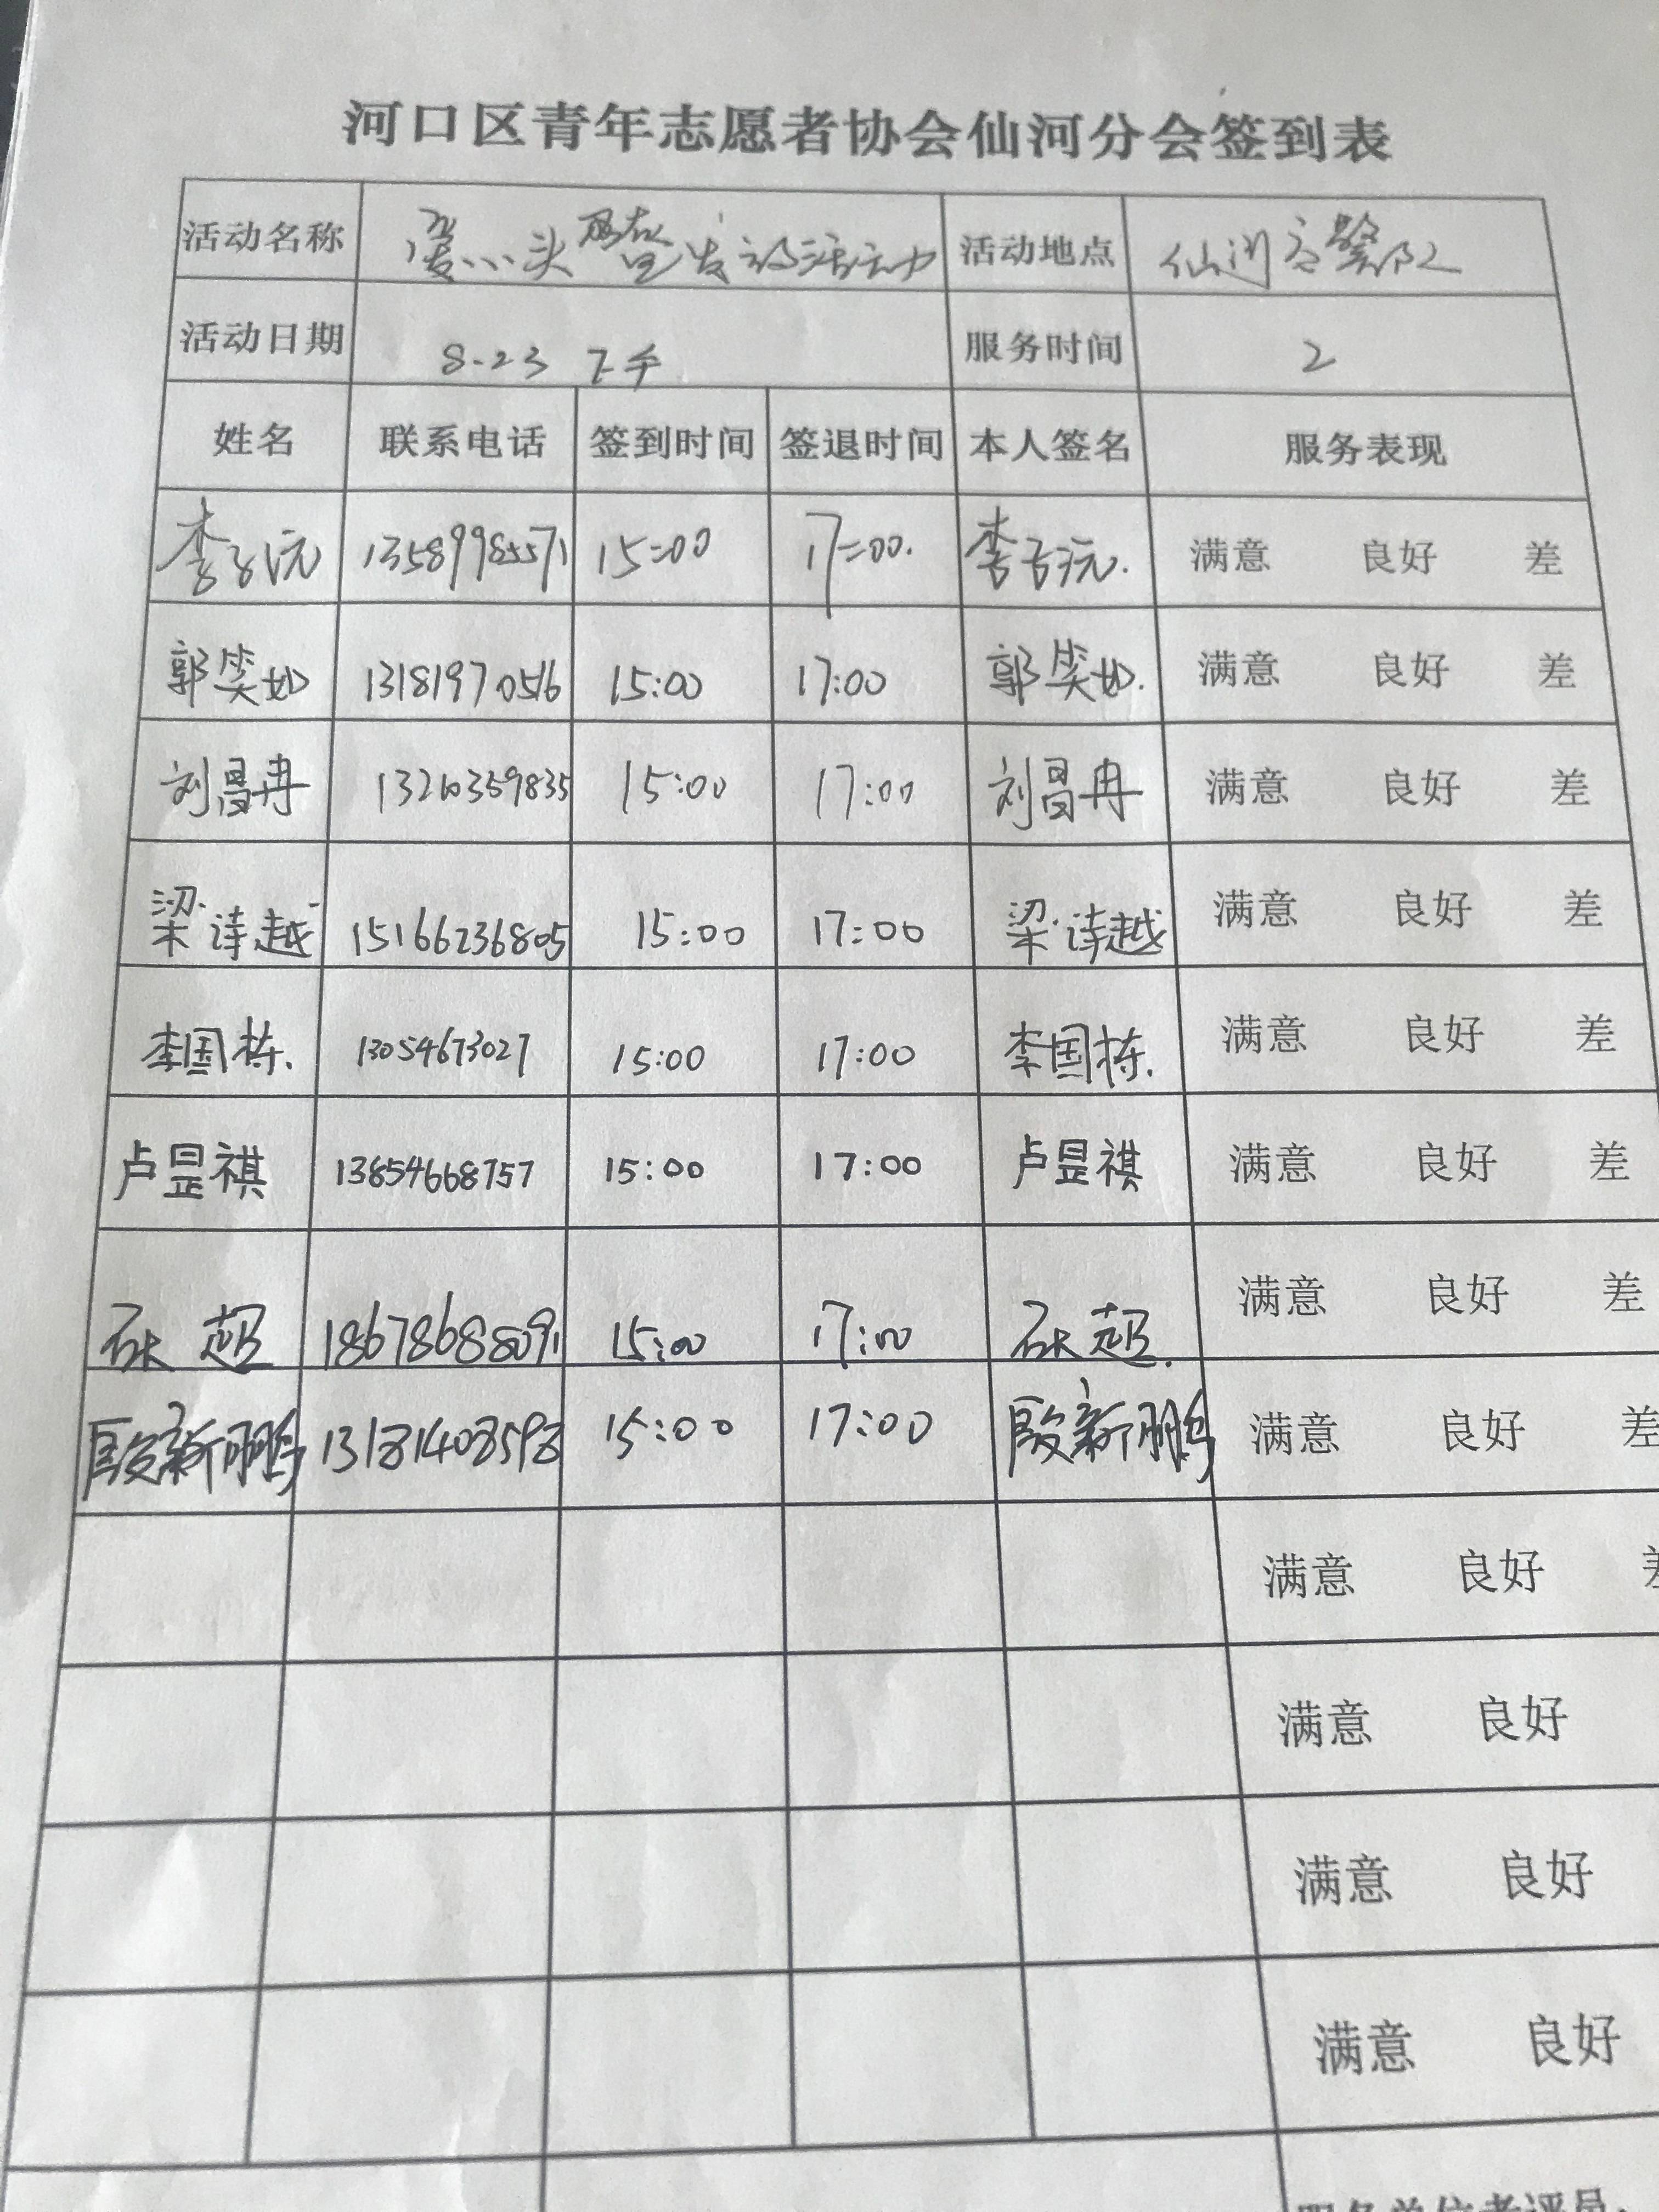 河口区青年志愿者协会仙河分会签到表
活动名称 爱心头盔发放活动 活动地点 仙河交警队
活动日期 8-23 下午 服务时间 2
姓名 联系电话 签到时间 签退时间 本人签名 服务表现
李子沅 13589985571 15:00 17:00. 李子沅. 满意 良好 差
郭笑如 13181970516 15:00 17:00 郭笑如. 满意 良好 差
刘昌冉 13210359835 15:00 17:00 刘昌冉 满意 良好 差
梁诗越 15166236805 15:00 17:00 梁诗越 满意 良好 差
李国栋. 13054673027 15:00 17:00 李国栋. 满意 良好 差
卢昱祺 13854668757 15:00 17:00 卢昱祺 满意 良好 差
超 18678688091 15:00 17:00 超. 满意 良好 差
殷新鹏 13181408598 15:00 17:00 殷新鹏 满意 良好 差
满意 良好 差
满意 良好
满意 良好
满意 良好